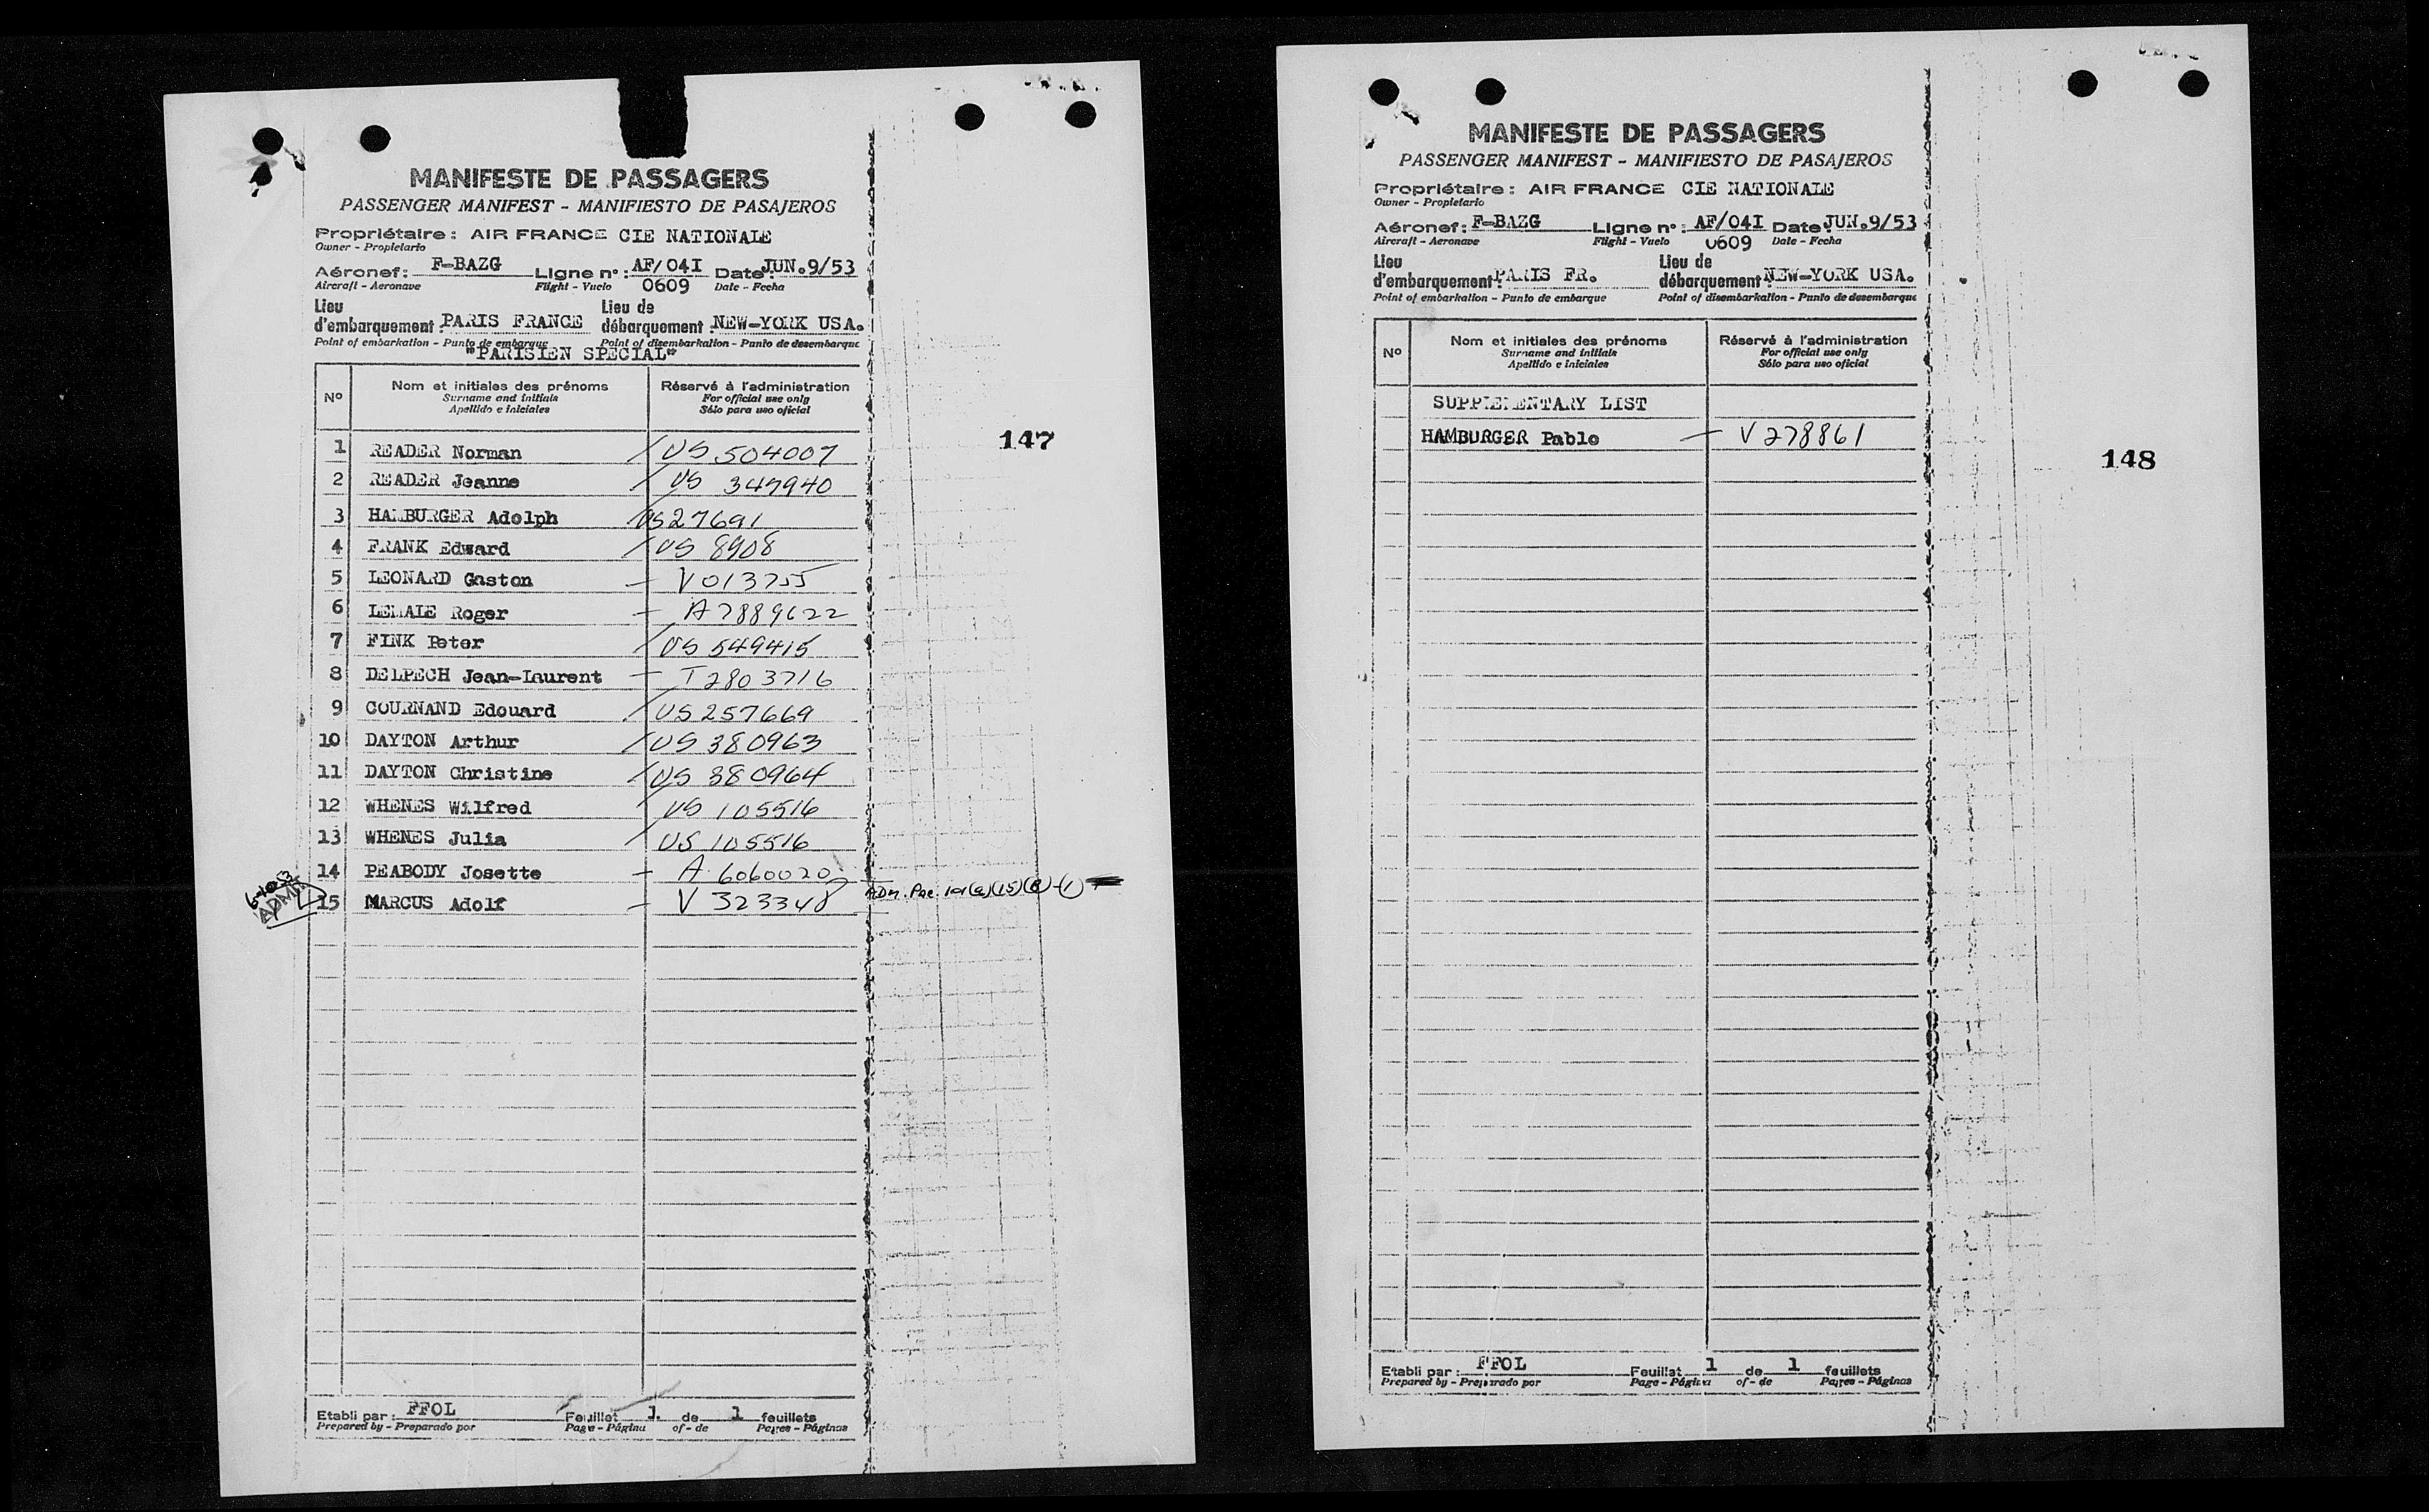 MANIFESTE DE PASSAGERS
PASSENGER MANIFEST - MANIFIESTO DE PASAJEROS
Propriétaire : AIR FRANCE CIE NATIONALE
Owner - Propietario
Aéronef : F-BAZG Ligne n° : AF/04I Date : JUN.9/53
Aircraft - Aeronave Flight - Vuelo 0609 Date - Fecha
Lieu d'embarquement : PARIS FRANCE Lieu de débarquement : NEW-YORK USA.
Point of embarkation - Punto de embarque Point of disembarkation - Punto de desembarque
"PARISIEN SPECIAL"
N° Nom et initiales des prénoms Réservé à l'administration
Surname and initials For official use only
Apellido e iniciales Sólo para uso oficial
147
1 READER Norman / US 504007
2 READER Jeanne / US 347940
3 HAMBURGER Adolph / US 27691
4 FRANK Edward / US 8908
5 LEONARD Gaston - V 013755
6 LEMALE Roger - A 7889622
7 FINK Peter / US 549415
8 DELPECH Jean-Laurent - T 2803716
9 COURNAND Edouard / US 257669
10 DAYTON Arthur / US 380963
11 DAYTON Christine / US 380964
12 WHENES Wilfred / US 105516
13 WHENES Julia / US 105516
14 PEABODY Josette - A 6060020
15 MARCUS Adolf - V 323348 ADM. Par. 101(a)(15)(B)-(1)
6-10-53
ADM
Etabli par : FFOL Feuillet 1 de 1 feuillets
Prepared by - Preparado por Page - Página of - de Pages - Páginas
MANIFESTE DE PASSAGERS
PASSENGER MANIFEST - MANIFIESTO DE PASAJEROS
Propriétaire : AIR FRANCE CIE NATIONALE
Owner - Propietario
Aéronef : F-BAZG Ligne n° : AF/04I Date : JUN.9/53
Aircraft - Aeronave Flight - Vuelo 0609 Date - Fecha
Lieu d'embarquement : PARIS FR. Lieu de débarquement : NEW-YORK USA.
Point of embarkation - Punto de embarque Point of disembarkation - Punto de desembarque
N° Nom et initiales des prénoms Réservé à l'administration
Surname and initials For official use only
Apellido e iniciales Sólo para uso oficial
SUPPLEMENTARY LIST
HAMBURGER Pablo - V 278861
148
Etabli par : FFOL Feuillet 1 de 1 feuillets
Prepared by - Preparado por Page - Página of - de Pages - Páginas